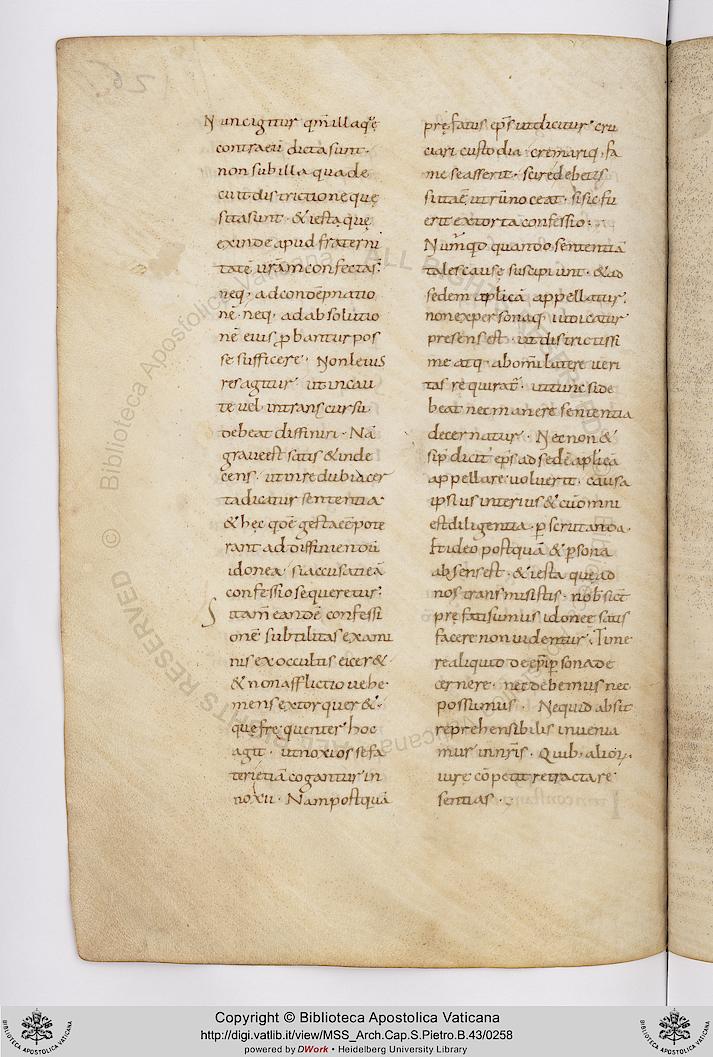 Nuncigitur qm̄illaquę
contraeū dicta sunt.
non subilla quade
cuit districtione quę
sita sunt. & iesta quę
exinde apud fraterni
tatē urā̄m confectas.
neq. adcondēpnatio
nē. neq. adabsolutio
nē eius ꝓbantur pos
se sufficere. Nonleuis
res agitur. ut incau
te uel intranscursu
debeat diffiniri. Nā
graueest satis & inde
cens. ut inre dubia cer
ta dicatur sententia.
& hęc qoē gesta eē pote
rant ad diffiniendū
idonea. siaccusatieā
confessio sequeretur.
Sitam̄ eandē confessi
onē subtilitas exami
nis ex occultis eicer&.
& non afflictio uehe
mens extorquer&.
que frequenter hoc
agit. ut noxios se fa
teri etiā cogantur in
noxii. Nam postquā
pręfatus ep̄s ut dicitur cru
ciari custodia. cremariq. fa
me se asserit. scire debetis
si ita ē. utrū noceat. si sic fu
erit extorta confessio.
Num̄qd quando sententiā
tales causę suscipiunt. & ad
sedem aplicā appellatur.
non ex personaq. iudicatur
presens est. ut districtissi
me atq. abom̄i latere ueri
tas requirat̄. ut tunc si de
beat nec manere sententia
decernatur. Necnon &
sip̄ dicit ep̄s ad sedē aplicā
appellare uoluerit. causa
ipsius interius & cū omni
est diligentia. ꝑscrutanda.
Et ideo postquā & ꝑsona
absens est. & iesta que ad
nos transmisistis. nob̄ sic̄t
pręfati sumus idonee satis
facere non uidentur. Time
re aliquid de ep̄i ꝑsona de
cernere. nec debemus nec
possumus. Nequid absit
reprehensibilis inuenia
mur innr̄is. Quib. alior̄.
iure cōpetit retractare
sentias.
Copyright © Biblioteca Apostolica Vaticana
http://digi.vatlib.it/view/MSS_Arch.Cap.S.Pietro.B.43/0258
powered by DWork • Heidelberg University Library